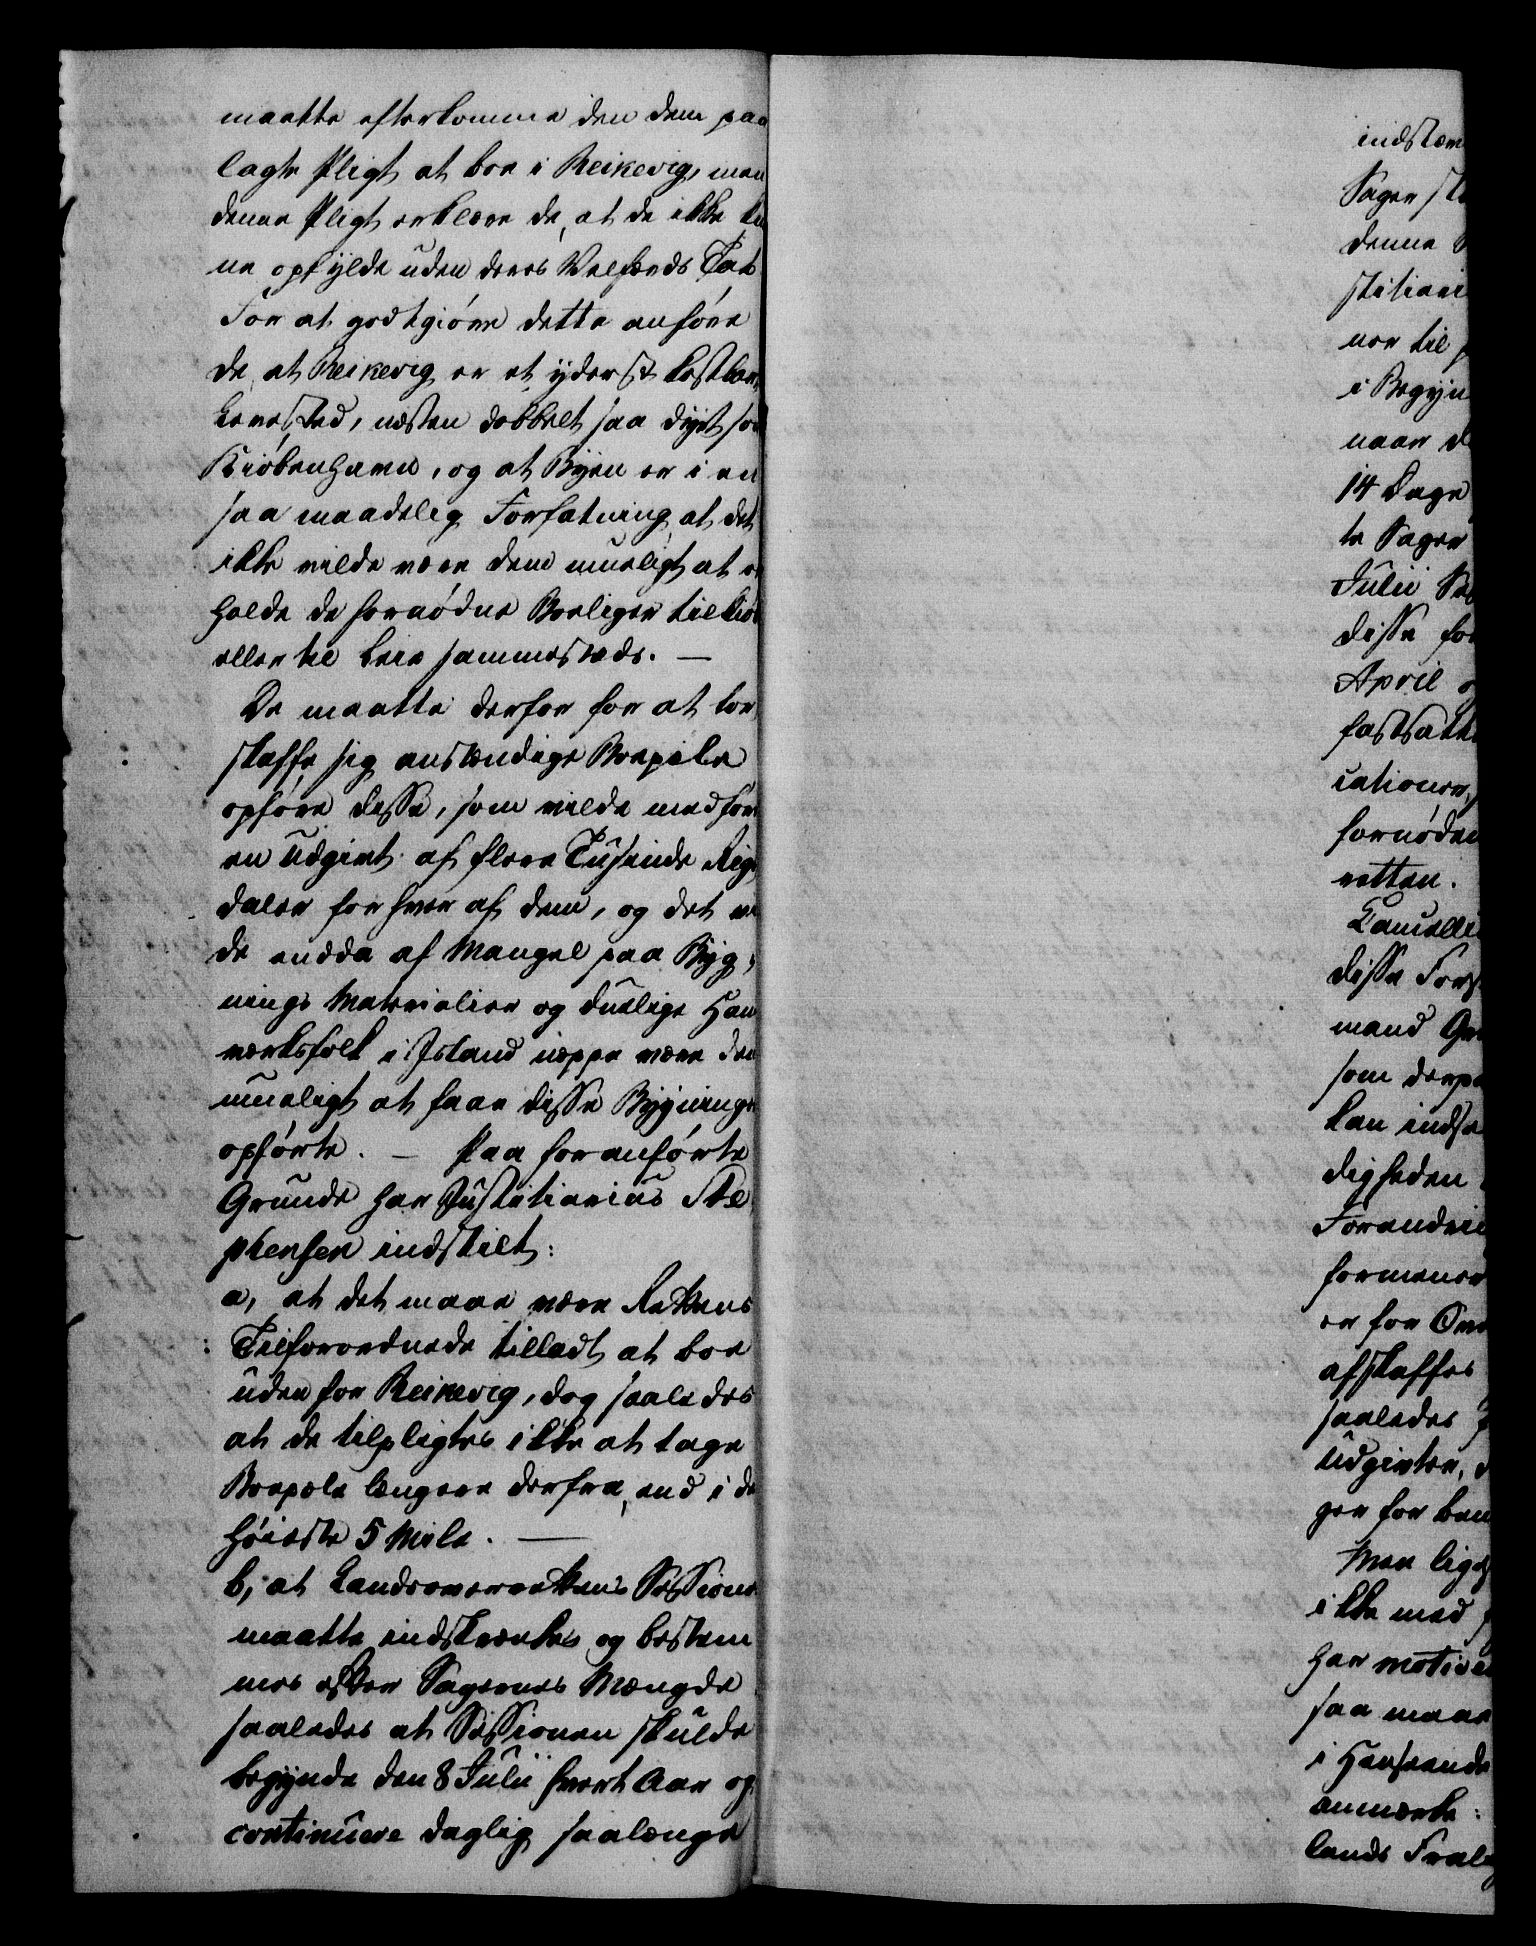 maatte efterkomme den dem paa
lagte Pligt at boe i Reikevig, men
denne Pligt erklære de, at de ikke
ne opfylde uden deres Velfærds Tab
For at godtgiøre dette anføre
de, at Reikevig er et yderst kostbart
Levested, næsten dobbelt saa dyrt som
Kiøbenhavn, og at Byen er i en
saa maadelig Forfatning, at det
ikke vilde være dem mueligt at er
holde de fornødne Boeliger til Kiøb
eller til Leie sammesteds. —
De maatte derfor for at for
skaffe sig anstændige Boepæle
opføre disse, som vilde medføre
en Udgivt af flere Tusinde Rigs
daler for hver af dem, og det vil
de endda af Mangel paa Byg,
nings Materialier og duelige Haand
værksfolk i Island neppe være dem
mueligt at faae disse Bygninger
opførte. — Paa foranførte
Grunde har Justitiarius Ste
phensen indstilt:
a, at det maae være Rettens
Tilforordnede tilladt at boe
uden for Reikevig, dog saaledes
at de tilpligtes ikke at tage
Boepæle længere derfra, end i det
høieste 5 Mile. —
b, at Landsoverrettens Sessioner
maatte indskrænkes og bestem
mes efter Sagernes Mængde
saaledes at Sessionen skulde
begynde den 8 Julii hvert Aar og
continuere daglig saalænge
indstæv
Sager
denne
stitiari
ner til
i Begyn
naar d
14 Dage
te Sager
Julii
disse for
April
fastsatte
cationer,
fornøden
retten.
Cancelli
disse Fors
mand
som derp
kan indse
digheden
Forandri
formener
er for
afskaffes
saaledes
Udgivter,
ger for
Men lige
ikke med
har motive
saa maae
i Henseende
anmærke:
lands